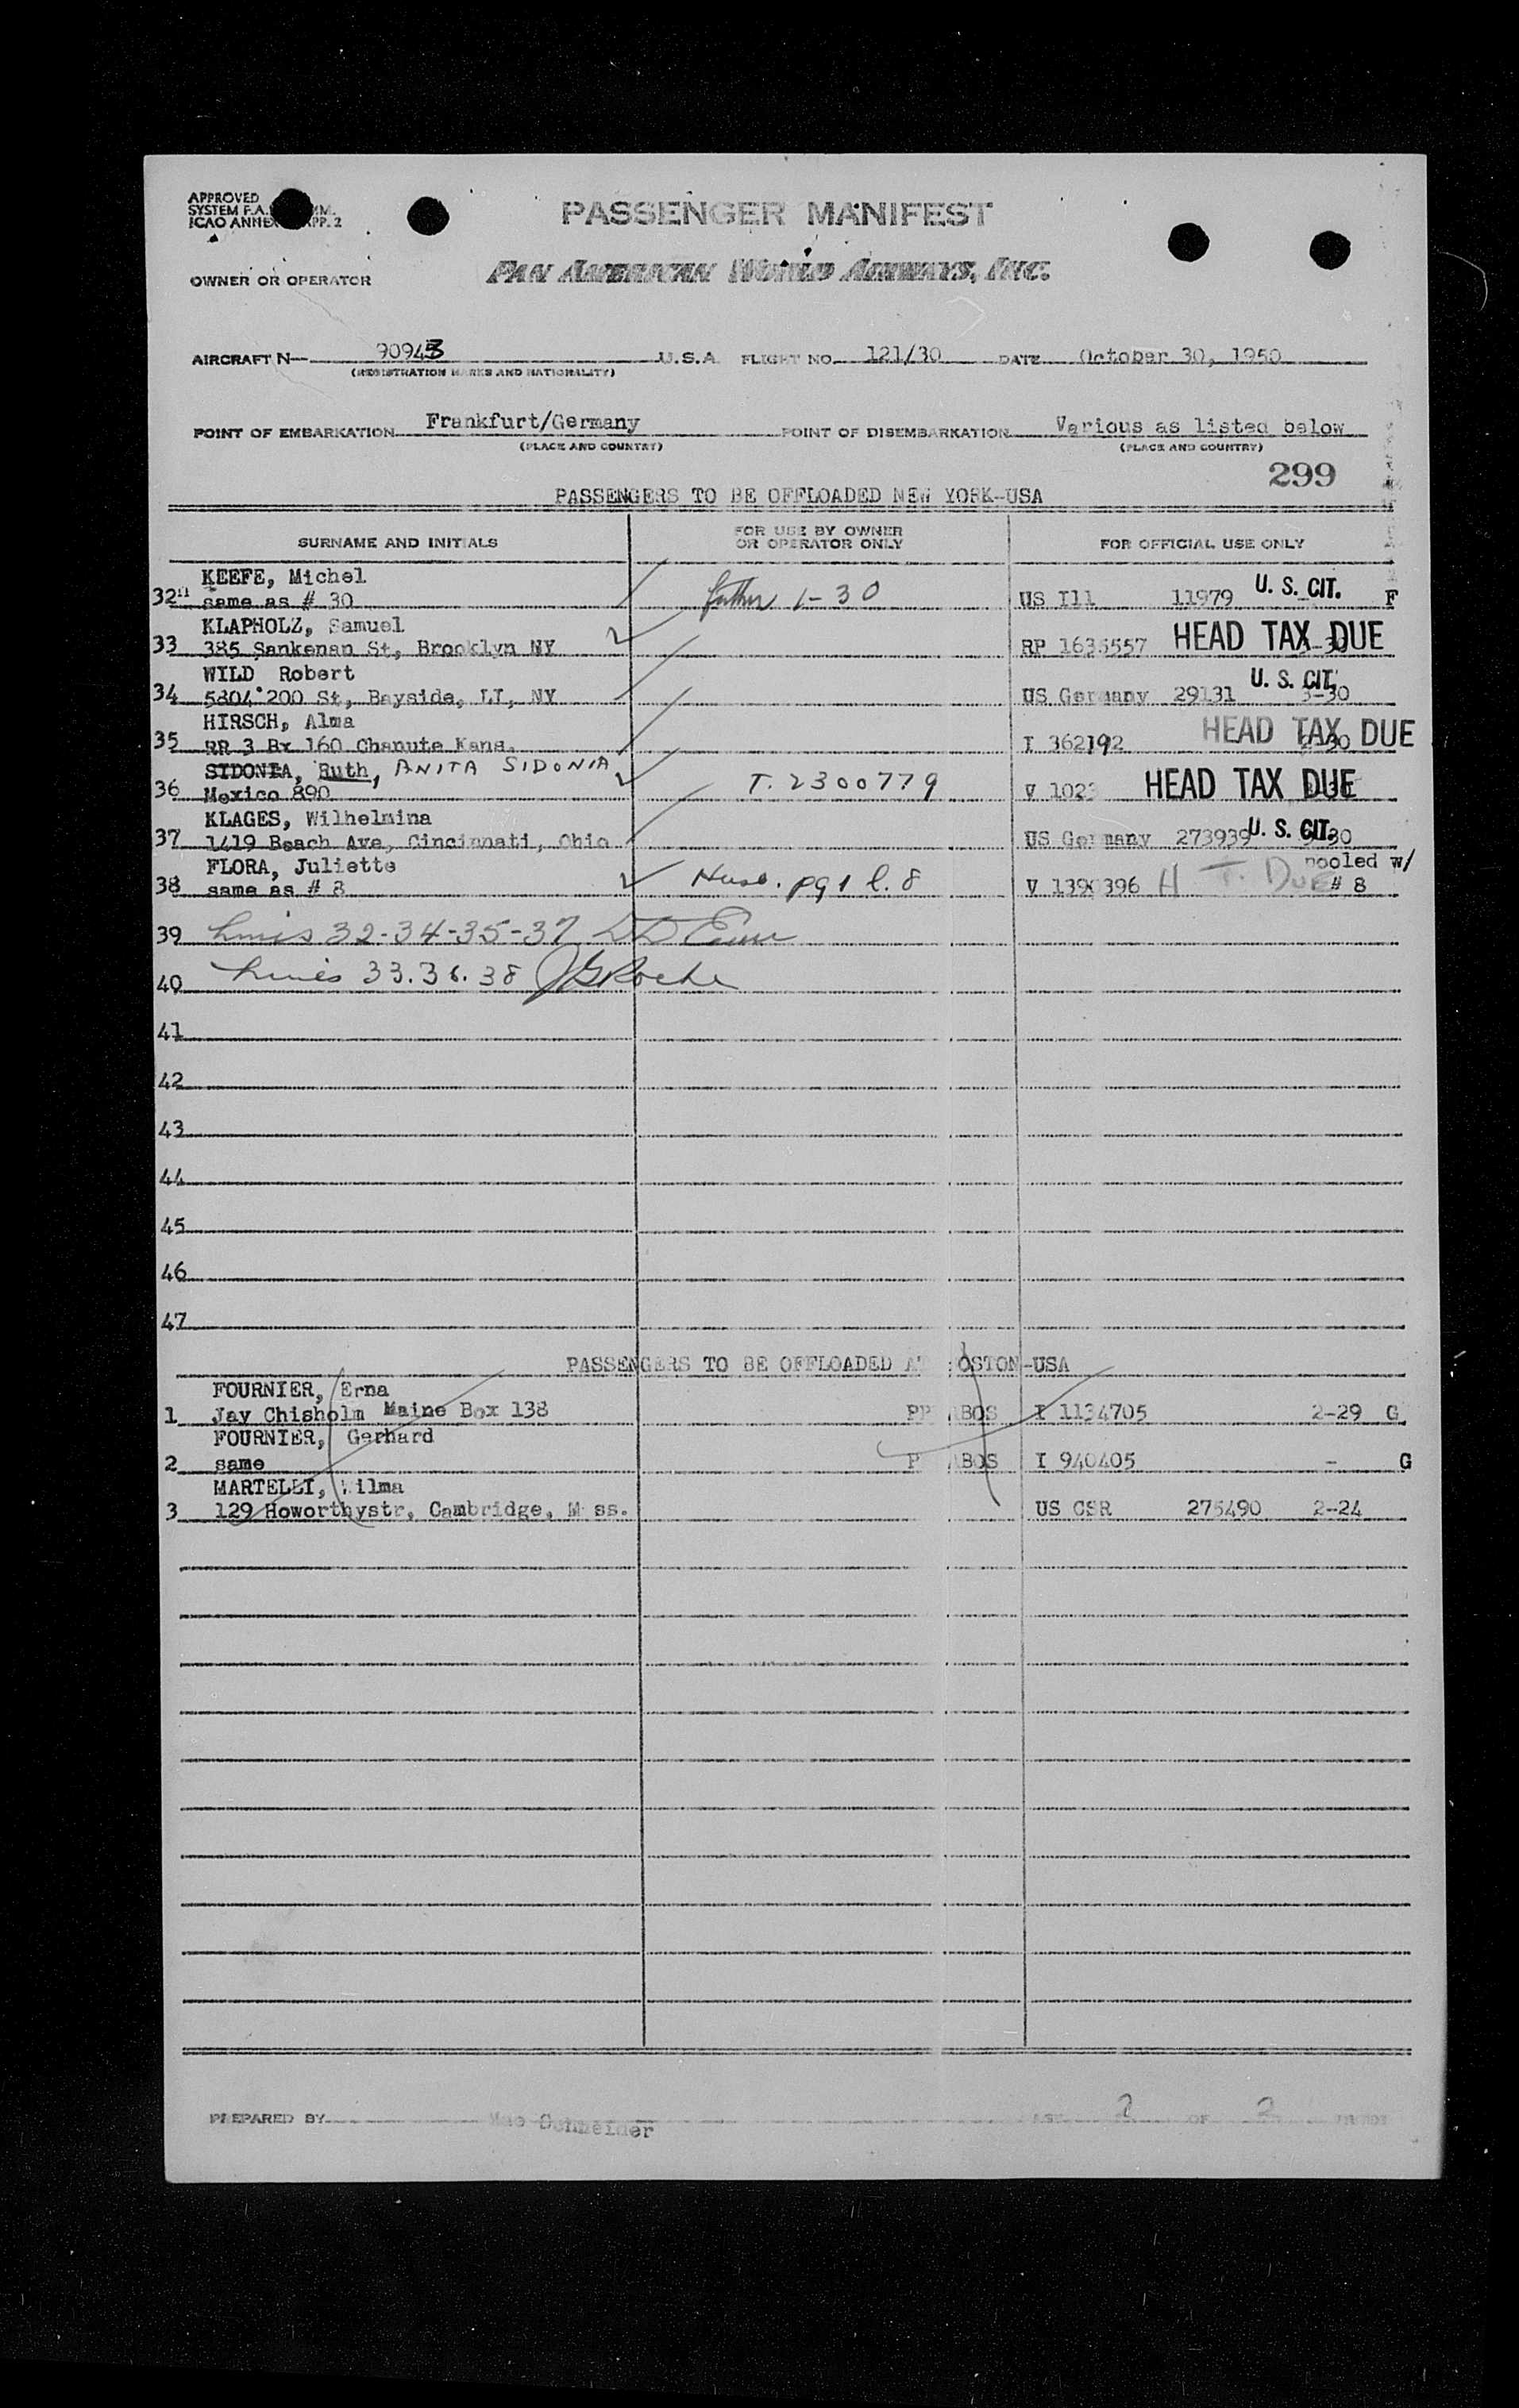 APPROVED
SYSTEM F.A.
ICAO ANNEX APP. 2
PASSENGER MANIFEST
OWNER OR OPERATOR PAN AMERICAN WORLD AIRWAYS, INC.
AIRCRAFT N— 90943 U.S.A. FLIGHT NO. 121/30 DATE October 30, 1950
(REGISTRATION MARKS AND NATIONALITY)
POINT OF EMBARKATION Frankfurt/Germany POINT OF DISEMBARKATION Various as listed below
(PLACE AND COUNTRY) (PLACE AND COUNTRY)
299
PASSENGERS TO BE OFFLOADED NEW YORK-USA
SURNAME AND INITIALS FOR USE BY OWNER OR OPERATOR ONLY FOR OFFICIAL USE ONLY
KEEFE, Michel
32 same as # 30 father 1-30 US Ill 11979 U. S. CIT. F
KLAPHOLZ, Samuel
33 385 Sankenan St, Brooklyn NY RP 1635557 HEAD TAX DUE
WILD Robert
34 5804 200 St, Bayside, LI, NY US Germany 29131 U. S. CIT. 3-30
HIRSCH, Alma
35 RR 3 Bx 160 Chanute Kans. I 362192 HEAD TAX DUE
SIDONIA, Ruth, ANITA SIDONIA
36 Mexico 890 T. 2300779 V 1023 HEAD TAX DUE
KLAGES, Wilhelmina
37 1419 Beach Ave, Cincinnati, Ohio US Germany 273939 U. S. CIT. 30
FLORA, Juliette pooled w/
38 same as # 8 Husb. pg 1 l. 8 V 1390396 H T. DUE # 8
39 Lines 32-34-35-37
40 Lines 33.36.38 JG Roche
41
42
43
44
45
46
47
PASSENGERS TO BE OFFLOADED AT BOSTON-USA
FOURNIER, Erna
1 Jay Chisholm Maine Box 138 PP ABOS I 1134705 2-29 G
FOURNIER, Gerhard
2 same P ABOS I 940405 - G
MARTELLI, Wilma
3 129 Howorthystr, Cambridge, M ss. US CSR 275490 2-24
PREPARED BY Schneider 2 OF 2